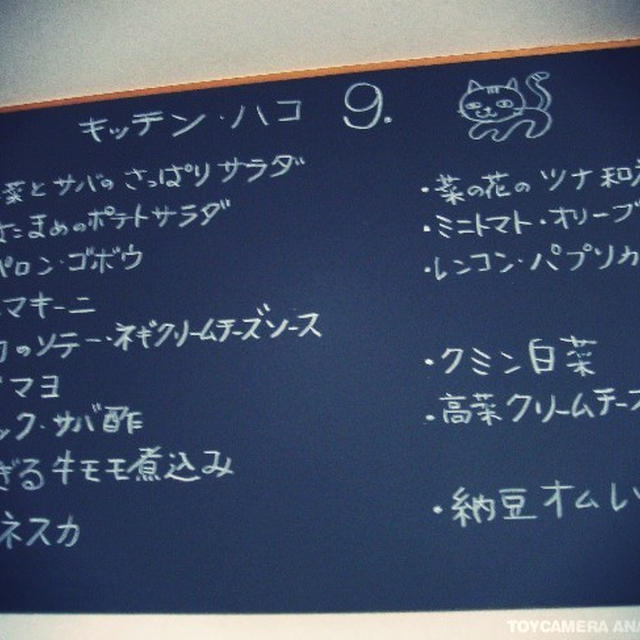 キッチン・ハコ 9.
菜とサバのさっぱりサラダ
たまめのポテトサラダ
ペロン・ゴボウ
マキーニ
のソテー・ネギクリームチーズソース
マヨ
ック・サバ酢
ぎる牛モモ煮込み
ネスカ
・菜の花のツナ和え
・ミニトマト・オリーブ
・レンコン・パプリカ
・クミン白菜
・高菜クリームチーズ
・納豆オムレ
TOYCAMERA ANA